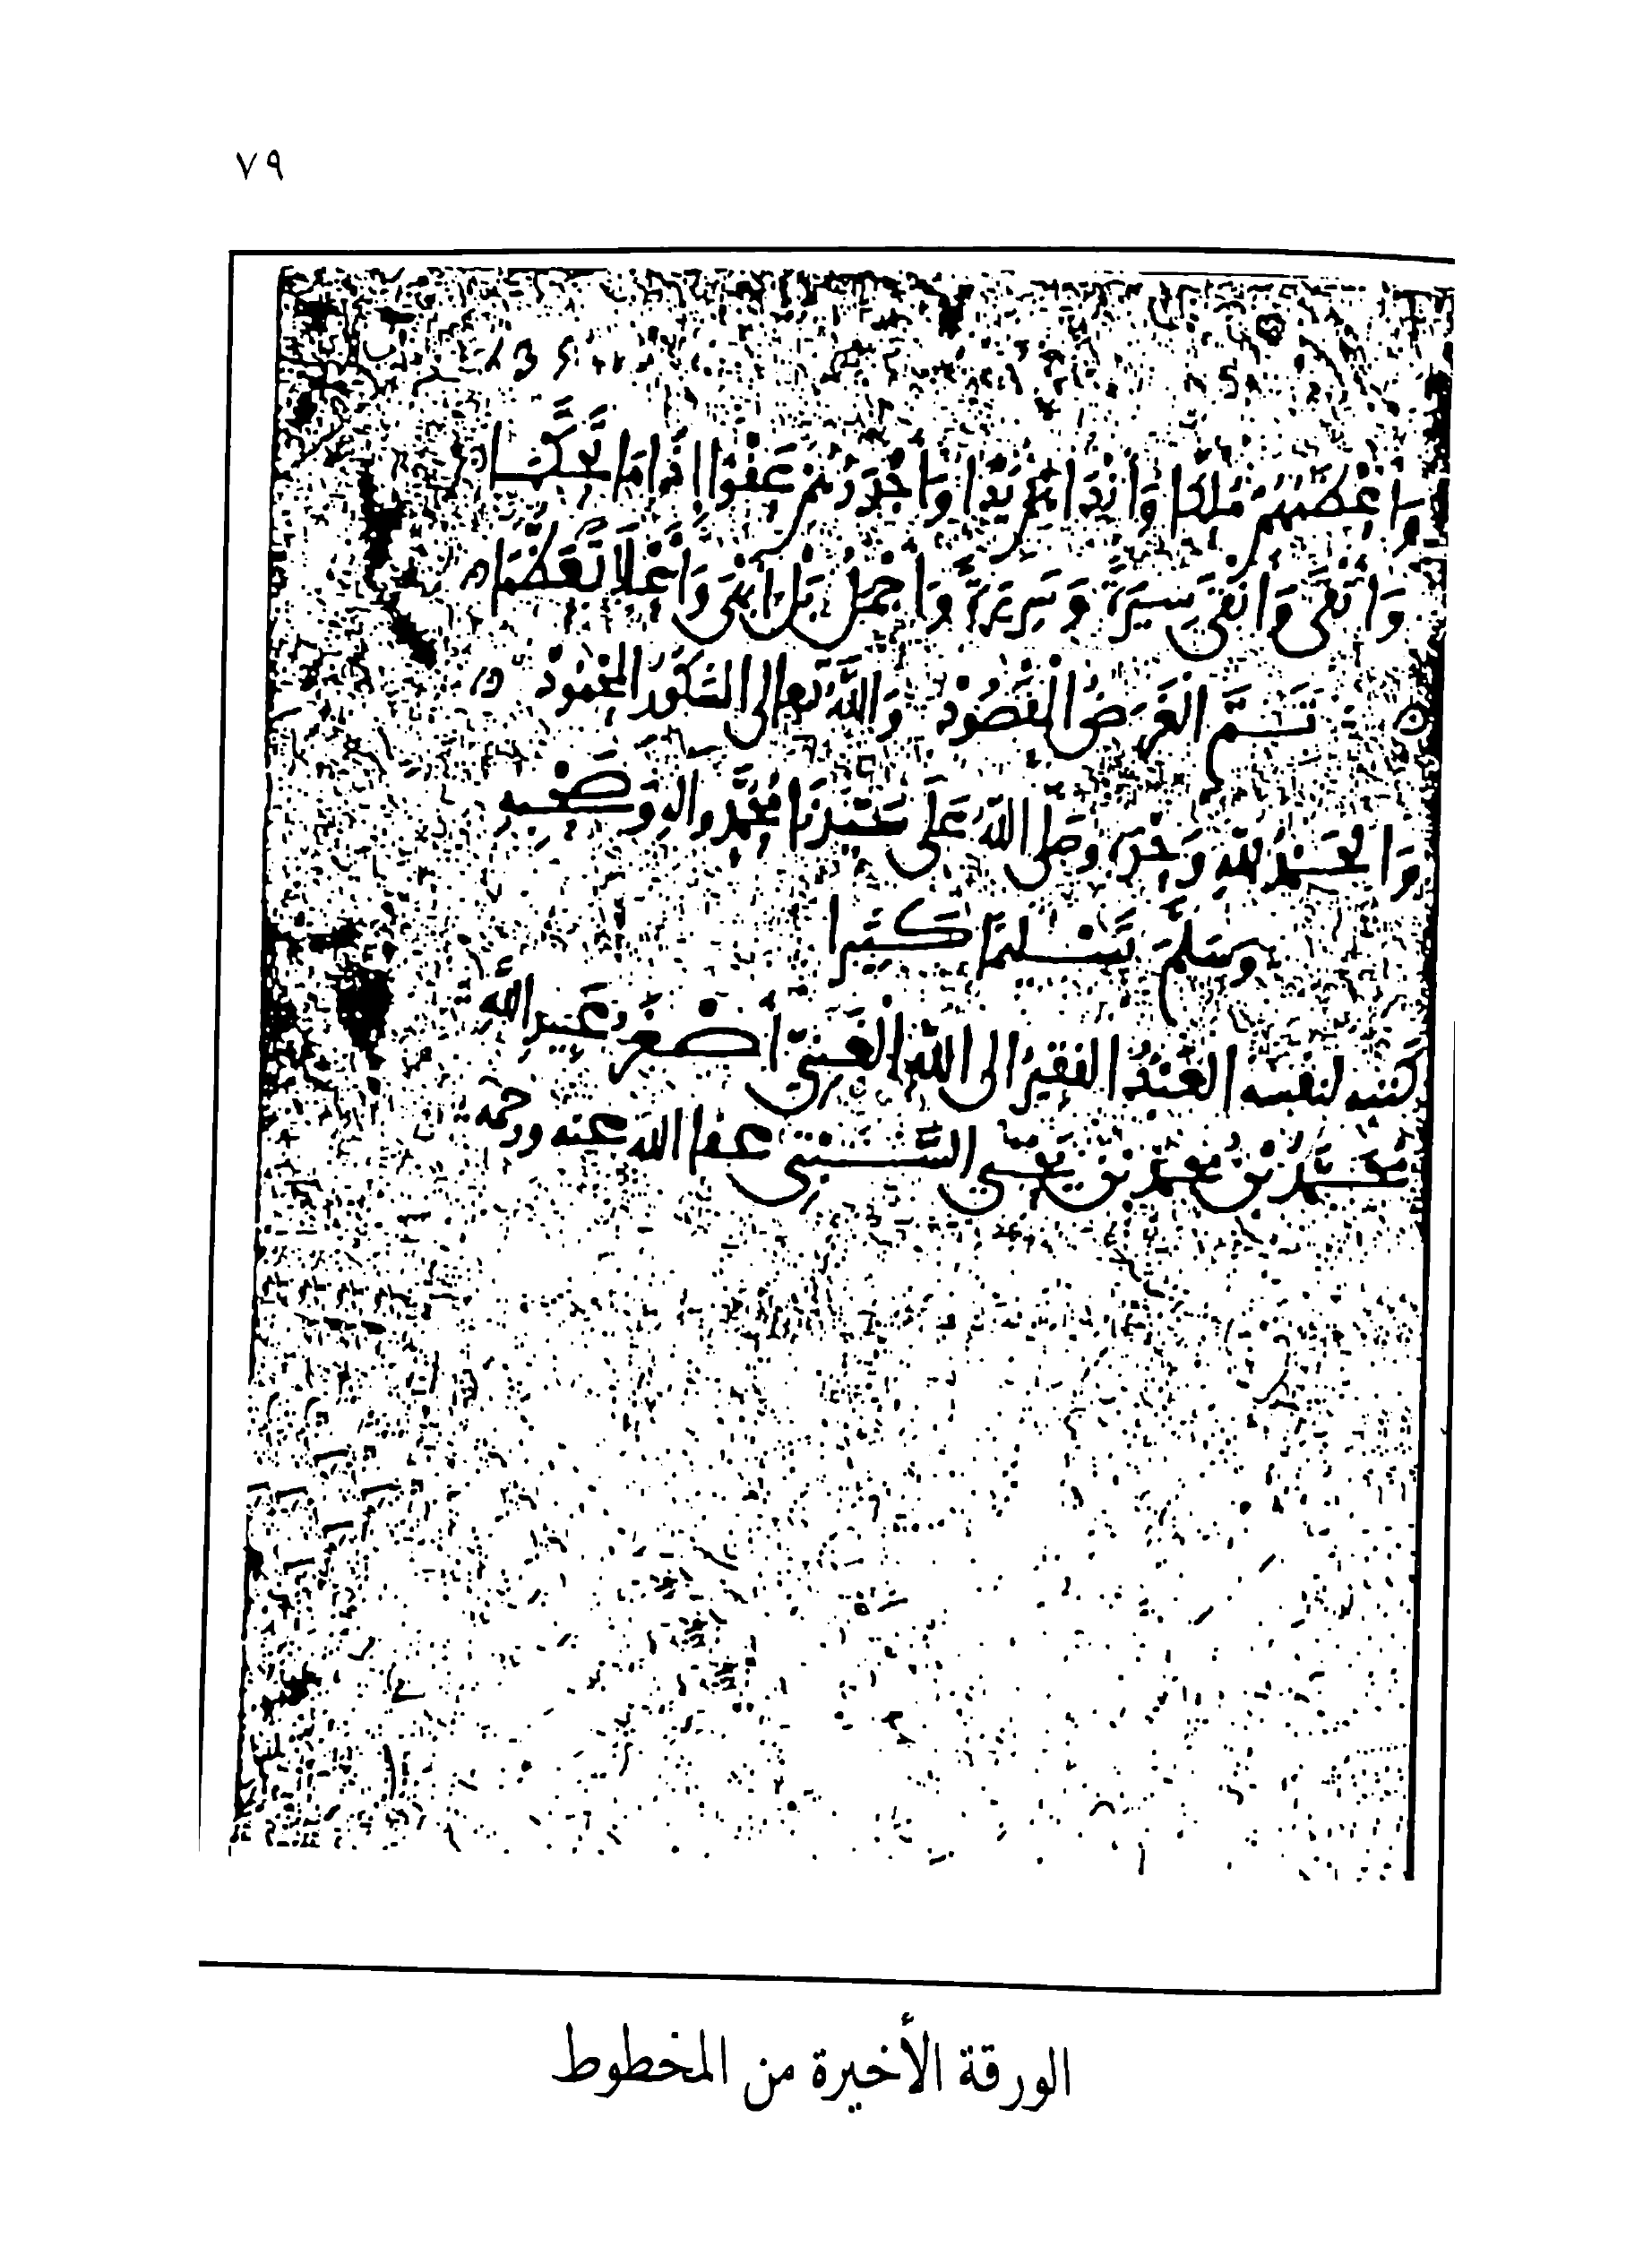 ٧٩
وأعظمهم ملكا وأنداهم يدا وأجدرهم عفوا إذا ما تحكما
وأتقى وأنقى سيرة وسريرة وأجمل بل أبهى وأعلا تعظما
تم الغرض المقصود والله تعالى الشكور المحمود
والحمد لله وحده وصلى الله على سيدنا محمد وآله وصحبه
وسلم تسليما كثيرا
كتبه لنفسه العبد الفقير إلى الله الغني أصغر عبيد الله
محمد بن محمد بن يحيى عفا الله عنه ورحمه
الورقة الأخيرة من المخطوط